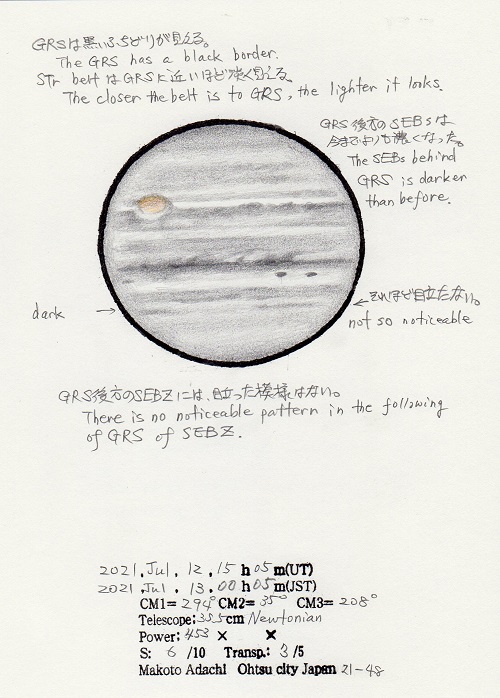 GRSは黒いふちどりが見える。
The GRS has a black border.
STr beltはGRSに近いほど淡く見える。
The closer the belt is to GRS, the lighter it looks.
GRS後方のSEBsは
今までよりも濃くなった。
The SEBs behind
GRS is darker
than before.
dark
それほど目立たない。
not so noticeable
GRS後方のSEBZには、目立った模様はない。
There is no noticeable pattern in the following
of GRS of SEBZ.
2021, Jul, 12, 15 h 05 m(UT)
2021, Jul, 13, 00 h 05 m(JST)
CM1= 294° CM2= 35° CM3= 208°
Telescope: 355cm Newtonian
Power: 453 × ×
S: 6 /10 Transp.: 3 /5
Makoto Adachi Ohtsu city Japan 21-48